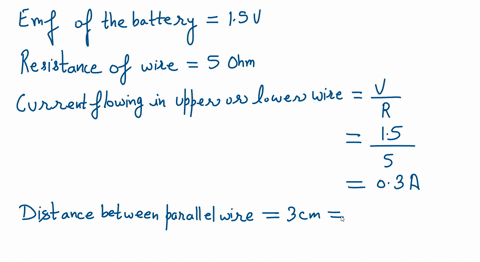 Emf of the battery = 1.5 V
Resistance of wire = 5 Ohm
Current flowing in upper or lower wire = V/R
= 1.5/5
= 0.3 A
Distance between parallel wire = 3 cm =